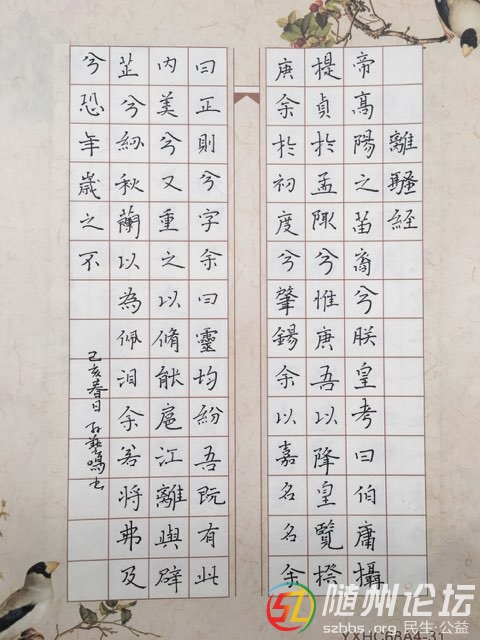 離騷經
帝高陽之苗裔兮朕皇考曰伯庸攝
提貞於孟陬兮惟庚吾以降皇覽揆
庚余於初度兮肇錫余以嘉名名余
曰正則兮字余曰靈均紛吾既有此
內美兮又重之以脩能扈江離與辟
芷兮紉秋蘭以為佩汩余若將弗及
兮恐年歲之不
己亥春日
鳴书
随州论坛
szbbs.org 民生·公益